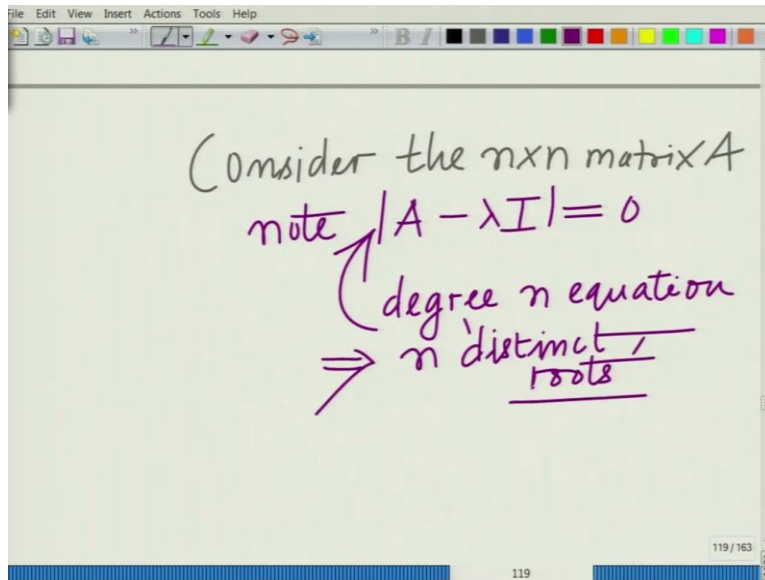 File Edit View Insert Actions Tools Help
B I
Consider the n×n matrix A
note |A - λI| = 0
degree n equation
⇒ n distinct,
roots
119/163
119